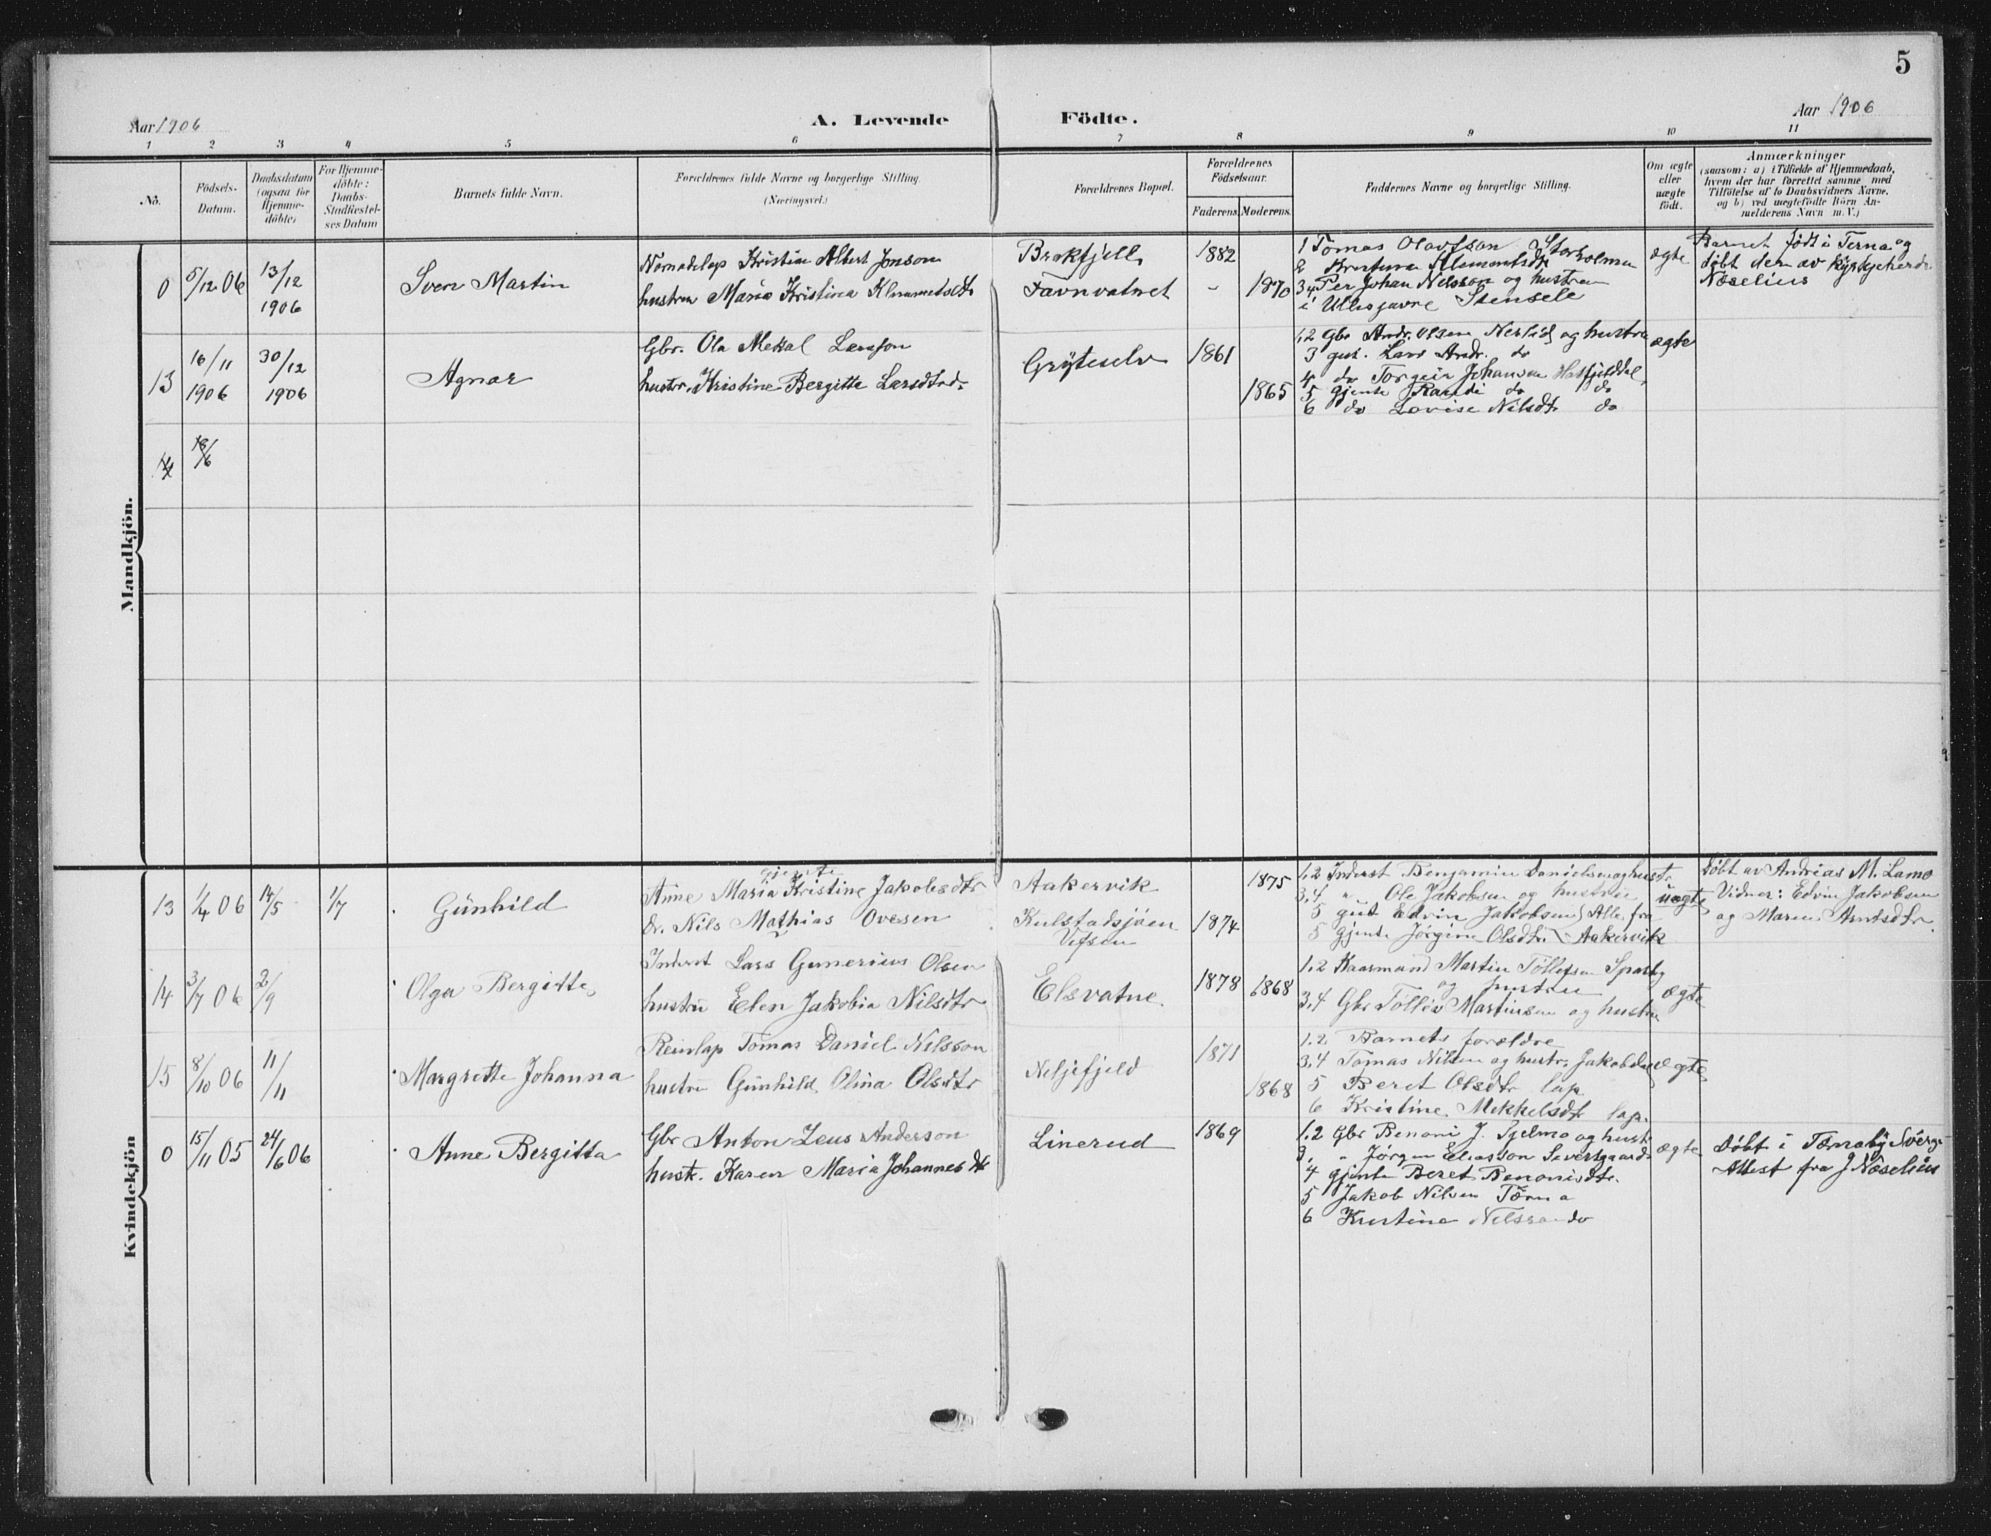 5
Aar 1906
A. Levende Födte.
Aar 1906
1 2 3 4 5 6 7 8 9 10 11
No.
Födsels-Datum.
Daabsdatum (ogsaa for Hjemmedöbte)
For Hjemmedöbte: Daabs-Stadfæstelses Datum
Barnets fulde Navn.
Forældrenes fulde Navne og borgerlige Stilling.
(Næringsvei.)
Forældrenes Bopæl.
Forældrenes Födselsaar.
Faderens. Moderens.
Faddernes Navne og borgerlige Stilling.
Om ægte eller uægte födt.
Anmærkninger
(saasom: a) i Tilfælde af Hjemmedaab,
hvem der har forrettet samme med
Tilföielse af to Daabsvidners Navne,
og b) ved uægtefödte Börn An-
melderens Navn m. V.)
Mandkjön.
0 5/12 06 13/12 1906
Sven Martin
Nomadelap Kristian Albert Jonson
hustru Maria Kristina Klemmetsdtr
Brakfjell
Favnvatnet
1882
- 1870
1 Tomas Olavsson Storholmen
2 Kristina Klemmetsdtr
3,4 Per Johan Nilsson og hustru
i Stensele
ægte
Barnet født i Terna og
døbt der av kyrkoherde
Næselius
13 16/11 1906 30/12 1906
Agnar
Gbr. Ola Mekal Larsson
hustr. Kristine Bergitte Larsdtr
Grytselv
1861
1865
1,2 Gbr Andr. Olsen Nerlid og hustru
3 gut. Lars Andr. do
4 do Torgeir Johansen Hatfjelddal
5 gjente Randi do do
6 do Lovise Nilsdtr do
ægte
14
Kvindekjön
13 1/4 06 14/5 1/7
Günhild
gjente
Anne Maria Kristine Jakobsdtr
Nils Mathias Ovesen
Aakervik
Kulstadsjøen
Vefsen
1875
1874
1,2 Inderst Benjamin Danielsen og hustr
3,4 " Ole Jakobsen og hustru
5 gut Edvin Jakobsen Alle fra
5 gjente Jørgine Olsdtr Aakervik
uægte
Døbt av Andrias M. Lamo
Vidner: Edvin Jakobsen
og Maren Arntsdtr.
14 3/7 06 2/9
Olga Bergitte
Inderst Lars Gunerius Olsen
hustru Elen Jakobia Nilsdtr
Elsvatne.
1878
1868
1.2 Kaarmand Martin Tollefsen
og hustru
3,4 Gbr Tollev Martinsen og hustru
ægte
15 8/10 06 11/11
Margrette Johanna
Reinlap Tomas Daniel Nilsson
hustru Günhild Olina Olsdtr
Neljefjeld
1871
1868
1.2 Barnets forældre
3,4 Tomas Nilsen og hustr.
5 Beret Olsdtr lap
6 Kristine Mekkelsdtr lap.
ægte
0 15/11 05 24/6 06
Anne Bergitta
Gbr Anton Zeus Anderson
hustr. Karen Maria Johannesdtr
Linerud
1869
1.2 Gbr Benoni J. Tjelmo og hustr
3. " Jørgen Eliasson
4 gjente Beret Benonisdtr.
5 Jakob Nilsen Tærna
6 Kristine Nilssen do
ægte
Døbt i Tærnaby Sverge
Attest fra J Næselius